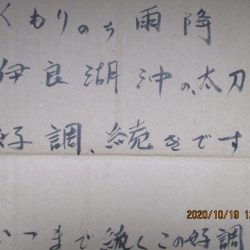 くもりのち雨降
伊良湖沖の、太刀
好調、続きです
いつまで続くこの好調
2020/10/19 1